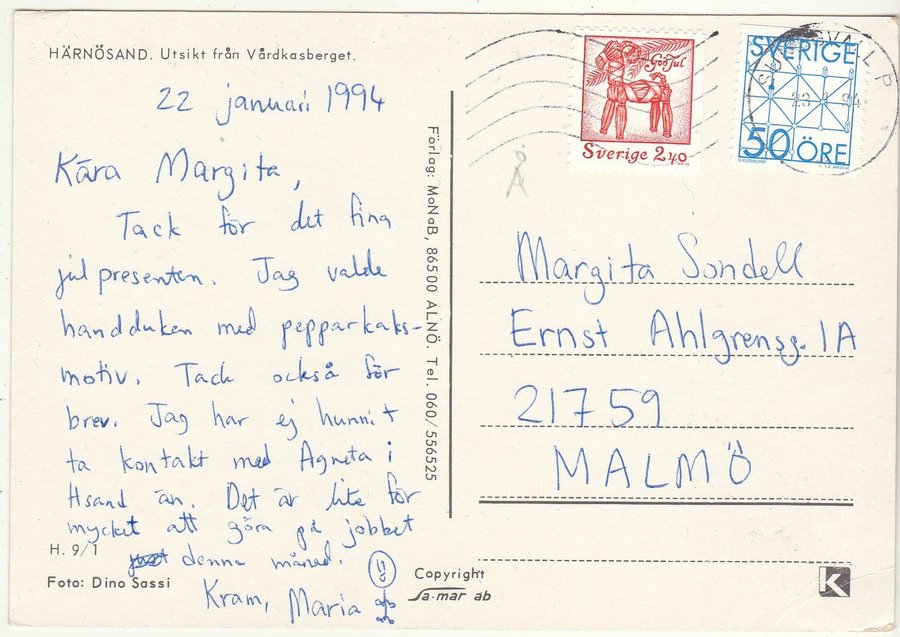 HÄRNÖSAND. Utsikt från Vårdkasberget.
22 januari 1994
Kära Margita,
Tack för det fina
julpresenten. Jag valde
handduken med pepparkaks-
motiv. Tack också för
brev. Jag har ej hunnit
ta kontakt med Agneta i
Hsand än. Det är lite för
mycket att göra på jobbet
denna månad.
Kram, Maria
H. 9/1
Foto: Dino Sassi
Förlag: MoNaB, 86500 ALNÖ. Tel. 060/556525
Copyright
Sa-mar ab
God Jul
Sverige 2.40
SVERIGE
50 ÖRE
Å
Margita Sondell
Ernst Ahlgrensg. 1A
21759
MALMÖ
K